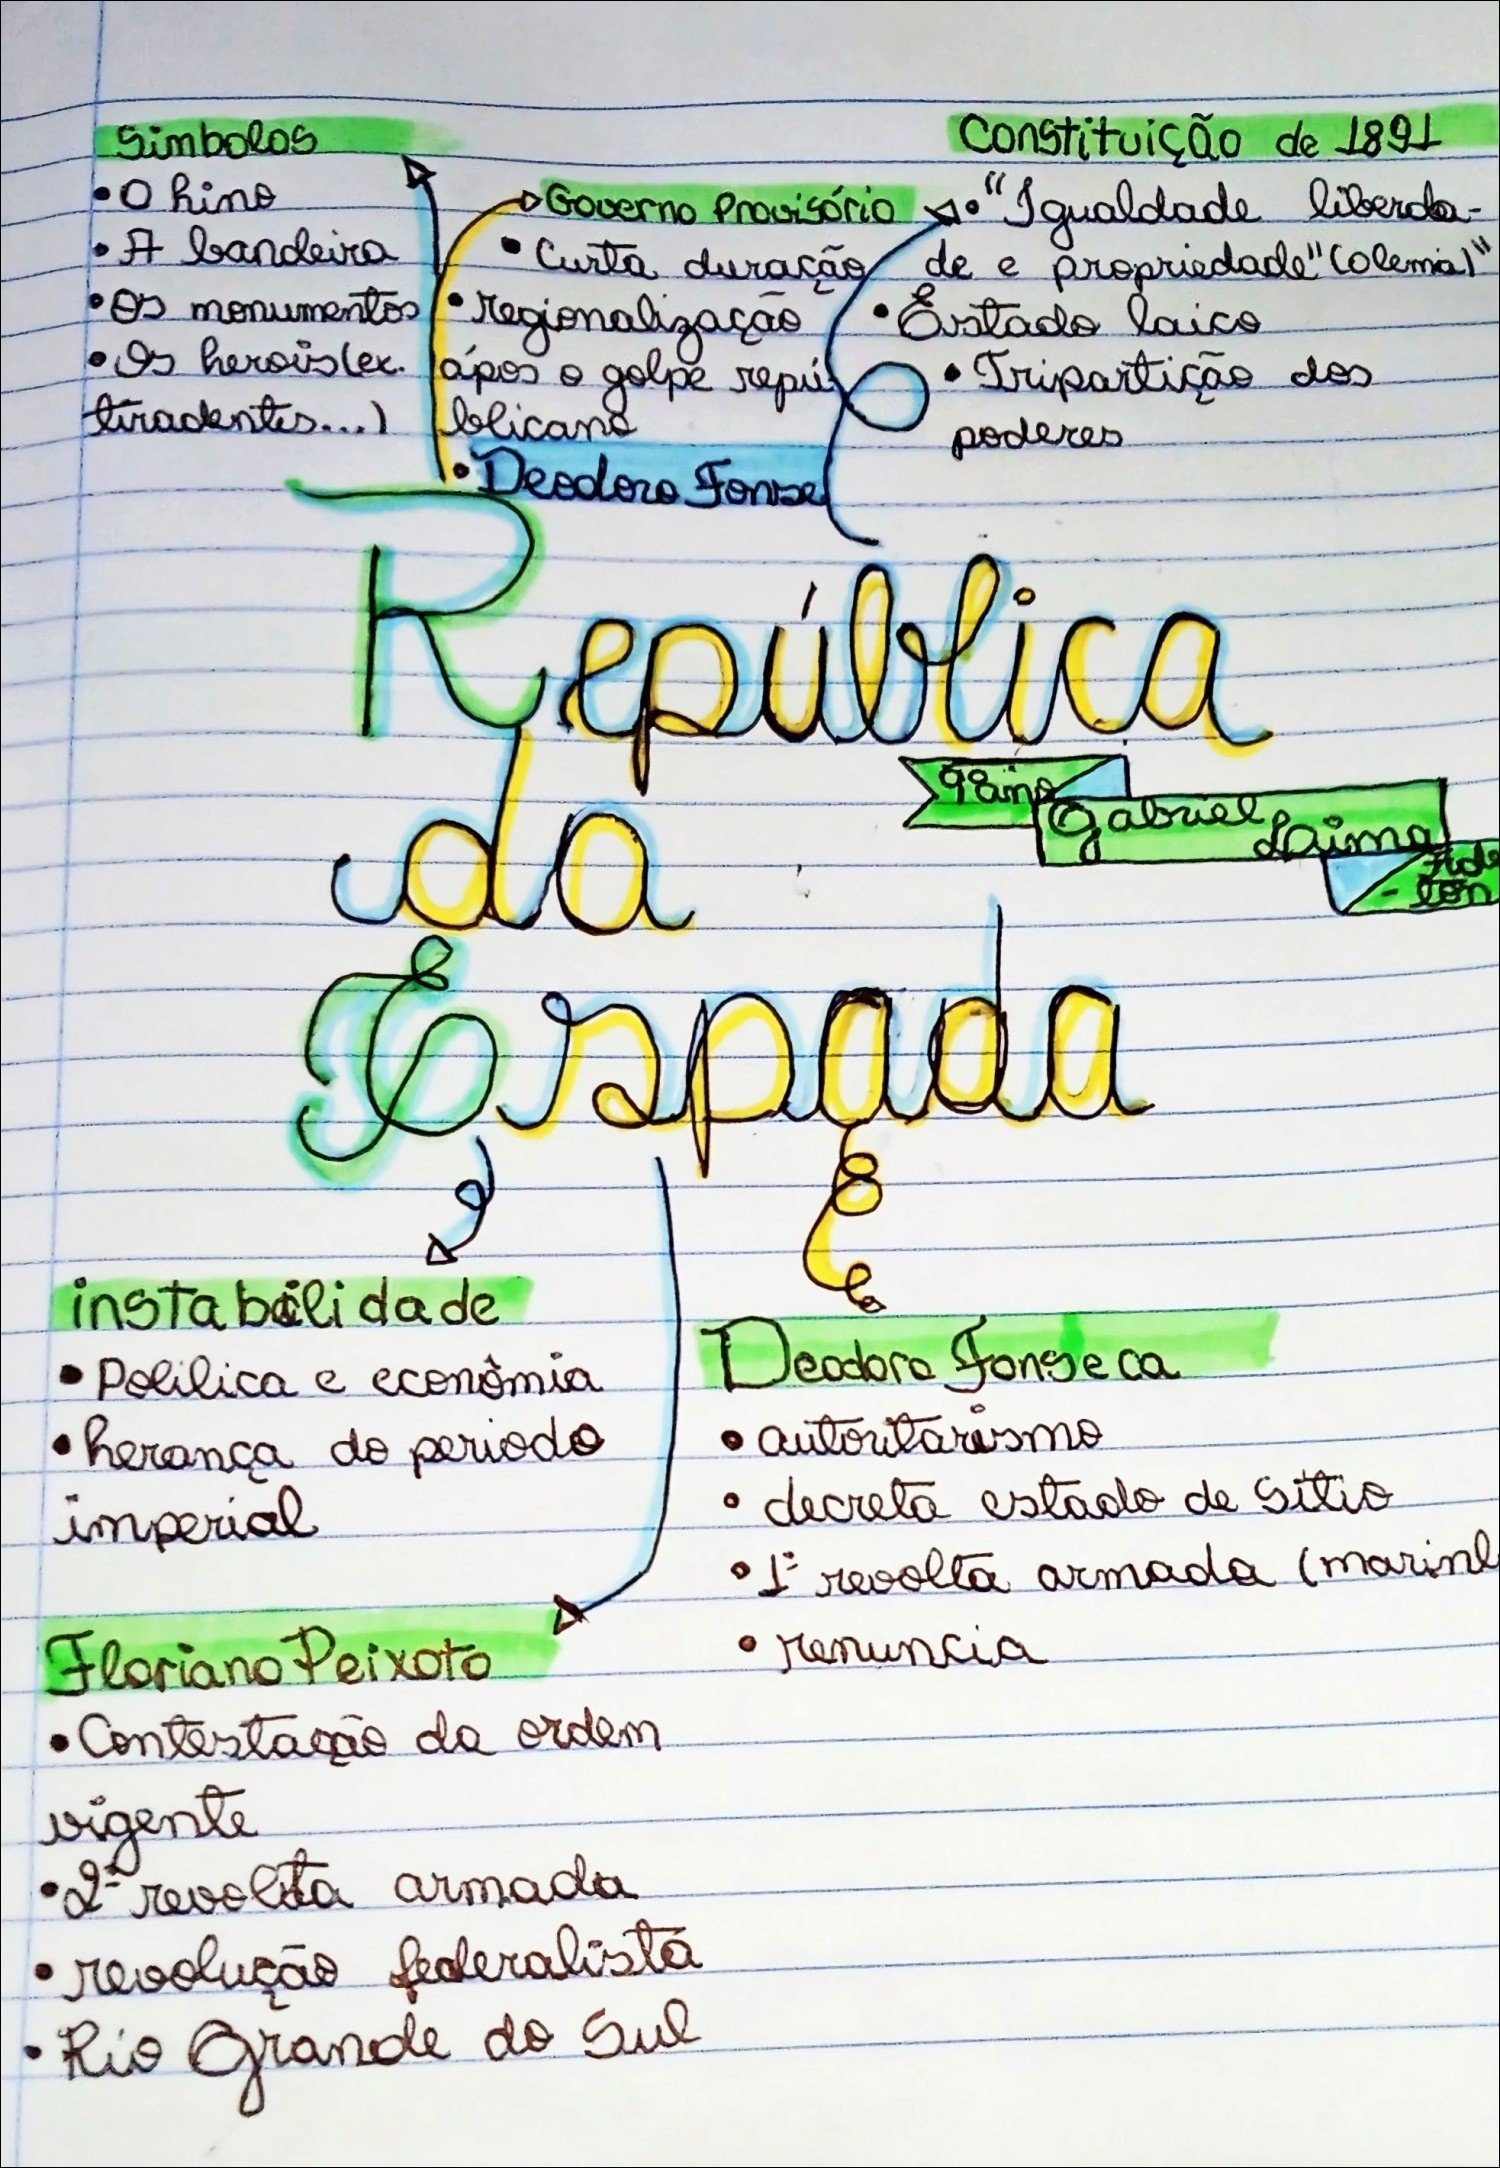 Simbolos
• O hino
• A bandeira
• Os monumentos
• Os herois (ex.
tiradentes...)
Governo Provisório
• Curta duração
• regionalização
ápos o golpe repú
blicano
• Deodoro Fonse
Constituição de 1891
• "Igualdade liberda-
de e propriedade"
• Estado laico
• Tripartição dos
poderes
República
da
Espada
9º ano
Gabriel
instabilidade
• Política e econômia
• herança do periodo
imperial
Deodoro Fonseca
• autoritarismo
• decreta estado de Sitio
• 1ª revolta armada (marinh
• renuncia
Floriano Peixoto
• Contestação da ordem
vigente
• 2ª revolta armada
• revolução federalista
• Rio Grande do Sul